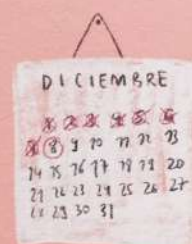 DICIEMBRE
1 2 3 4 5 6
7 8 9 10 11 12 13
14 15 16 17 18 19 20
21 22 23 24 25 26 27
28 29 30 31